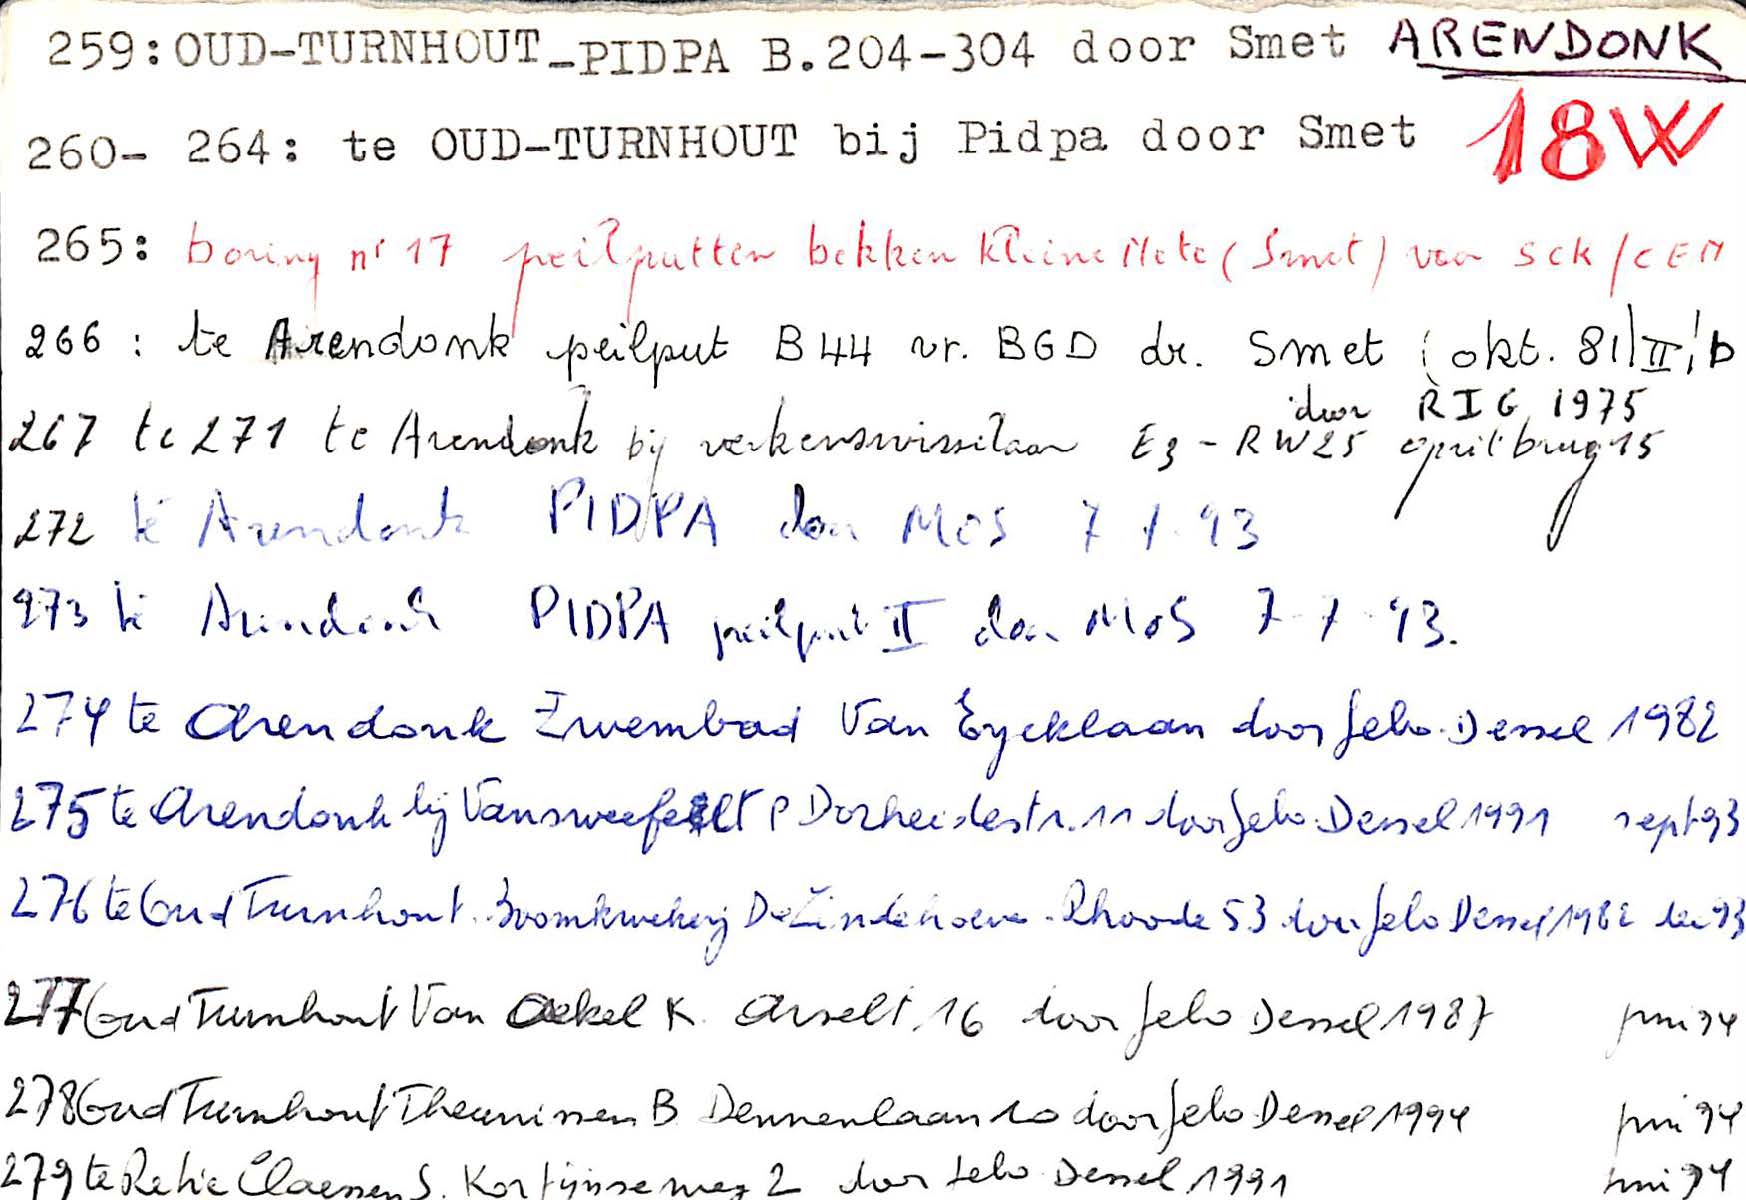 259: OUD-TURNHOUT-PIDPA B.204-304 door Smet ARENDONK
260- 264: te OUD-TURNHOUT bij Pidpa door Smet 18W
265: boring nr 17 peilputten bekken Kleine Nete (Smet) voor SCK/CEN
266 : te Arendonk peilput B44 vr. BGD dr. Smet (okt. 81 II D
door RIG 1975
267 te 271 te Arendonk bij verkenswisselaar E3-RW25 oprit brug 15
272 te Arendonk PIDPA door MOS 7 1.93
273 te Arendonk PIDPA peilput II door MOS 7-7-93.
274 te Arendonk Zwembad Van Eycklaan door Dessel 1982
275 te Arendonk bij Vansweefelt P Dorheidestr. 11 door Dessel 1991 sept 93
276 te Oud Turnhout Boomkwekerij De Lindehoeve Rhoode 53 door Dessel 1982 dec 93
277 Oud Turnhout Van Aekel K. Arselt 16 door Dessel 1987 juni 94
278 Oud Turnhout Theunissen B Dennenlaan 10 door Dessel 1994 juni 94
279 te Retie Claessen S. Kortijnseweg 2 door Dessel 1991 juni 94